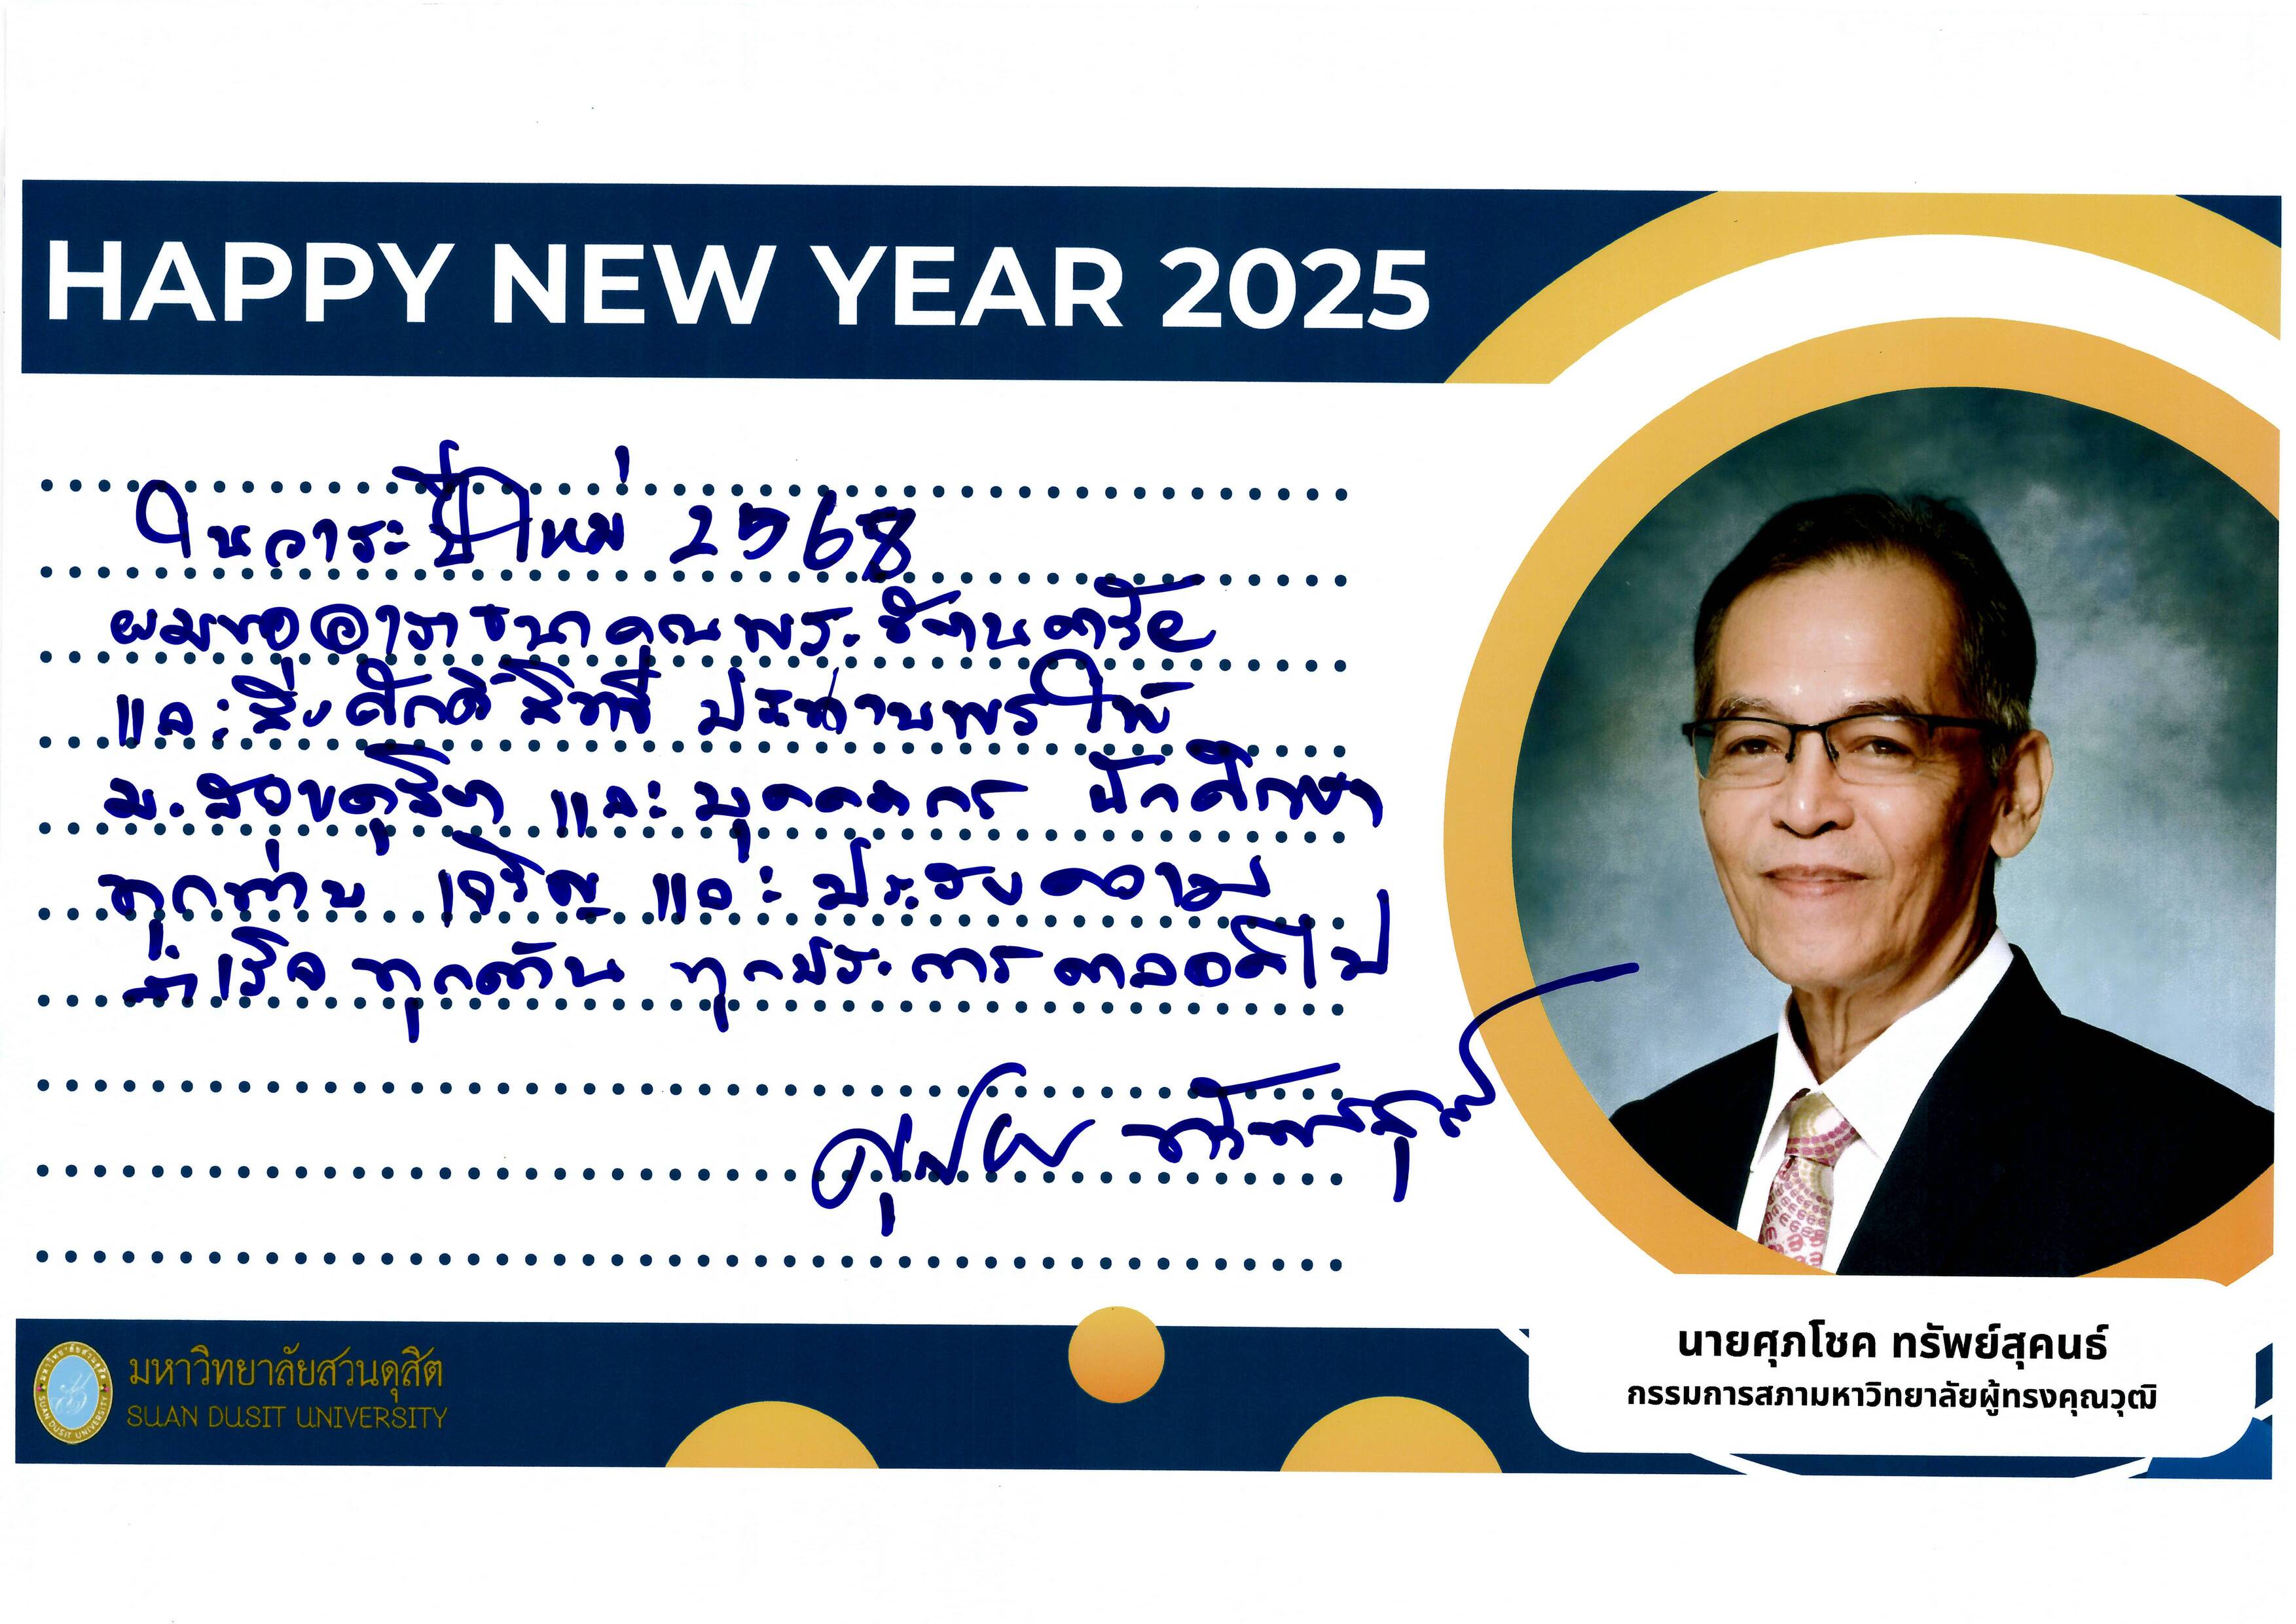 HAPPY NEW YEAR 2025
ในวาระปีใหม่ 2568
ผมขออาราธนาคุณพระรัตนตรัย
และสิ่งศักดิ์สิทธิ์ ประทานพรให้
ม.สวนดุสิต และบุคคลากร นักศึกษา
ทุกท่าน เจริญ และประสบความ
สำเร็จ ทุกด้าน ทุกประการ ตลอดไป
ศุภโชค ทรัพย์สุคนธ์
นายศุภโชค ทรัพย์สุคนธ์
กรรมการสภามหาวิทยาลัยผู้ทรงคุณวุฒิ
มหาวิทยาลัยสวนดุสิต
SUAN DUSIT UNIVERSITY